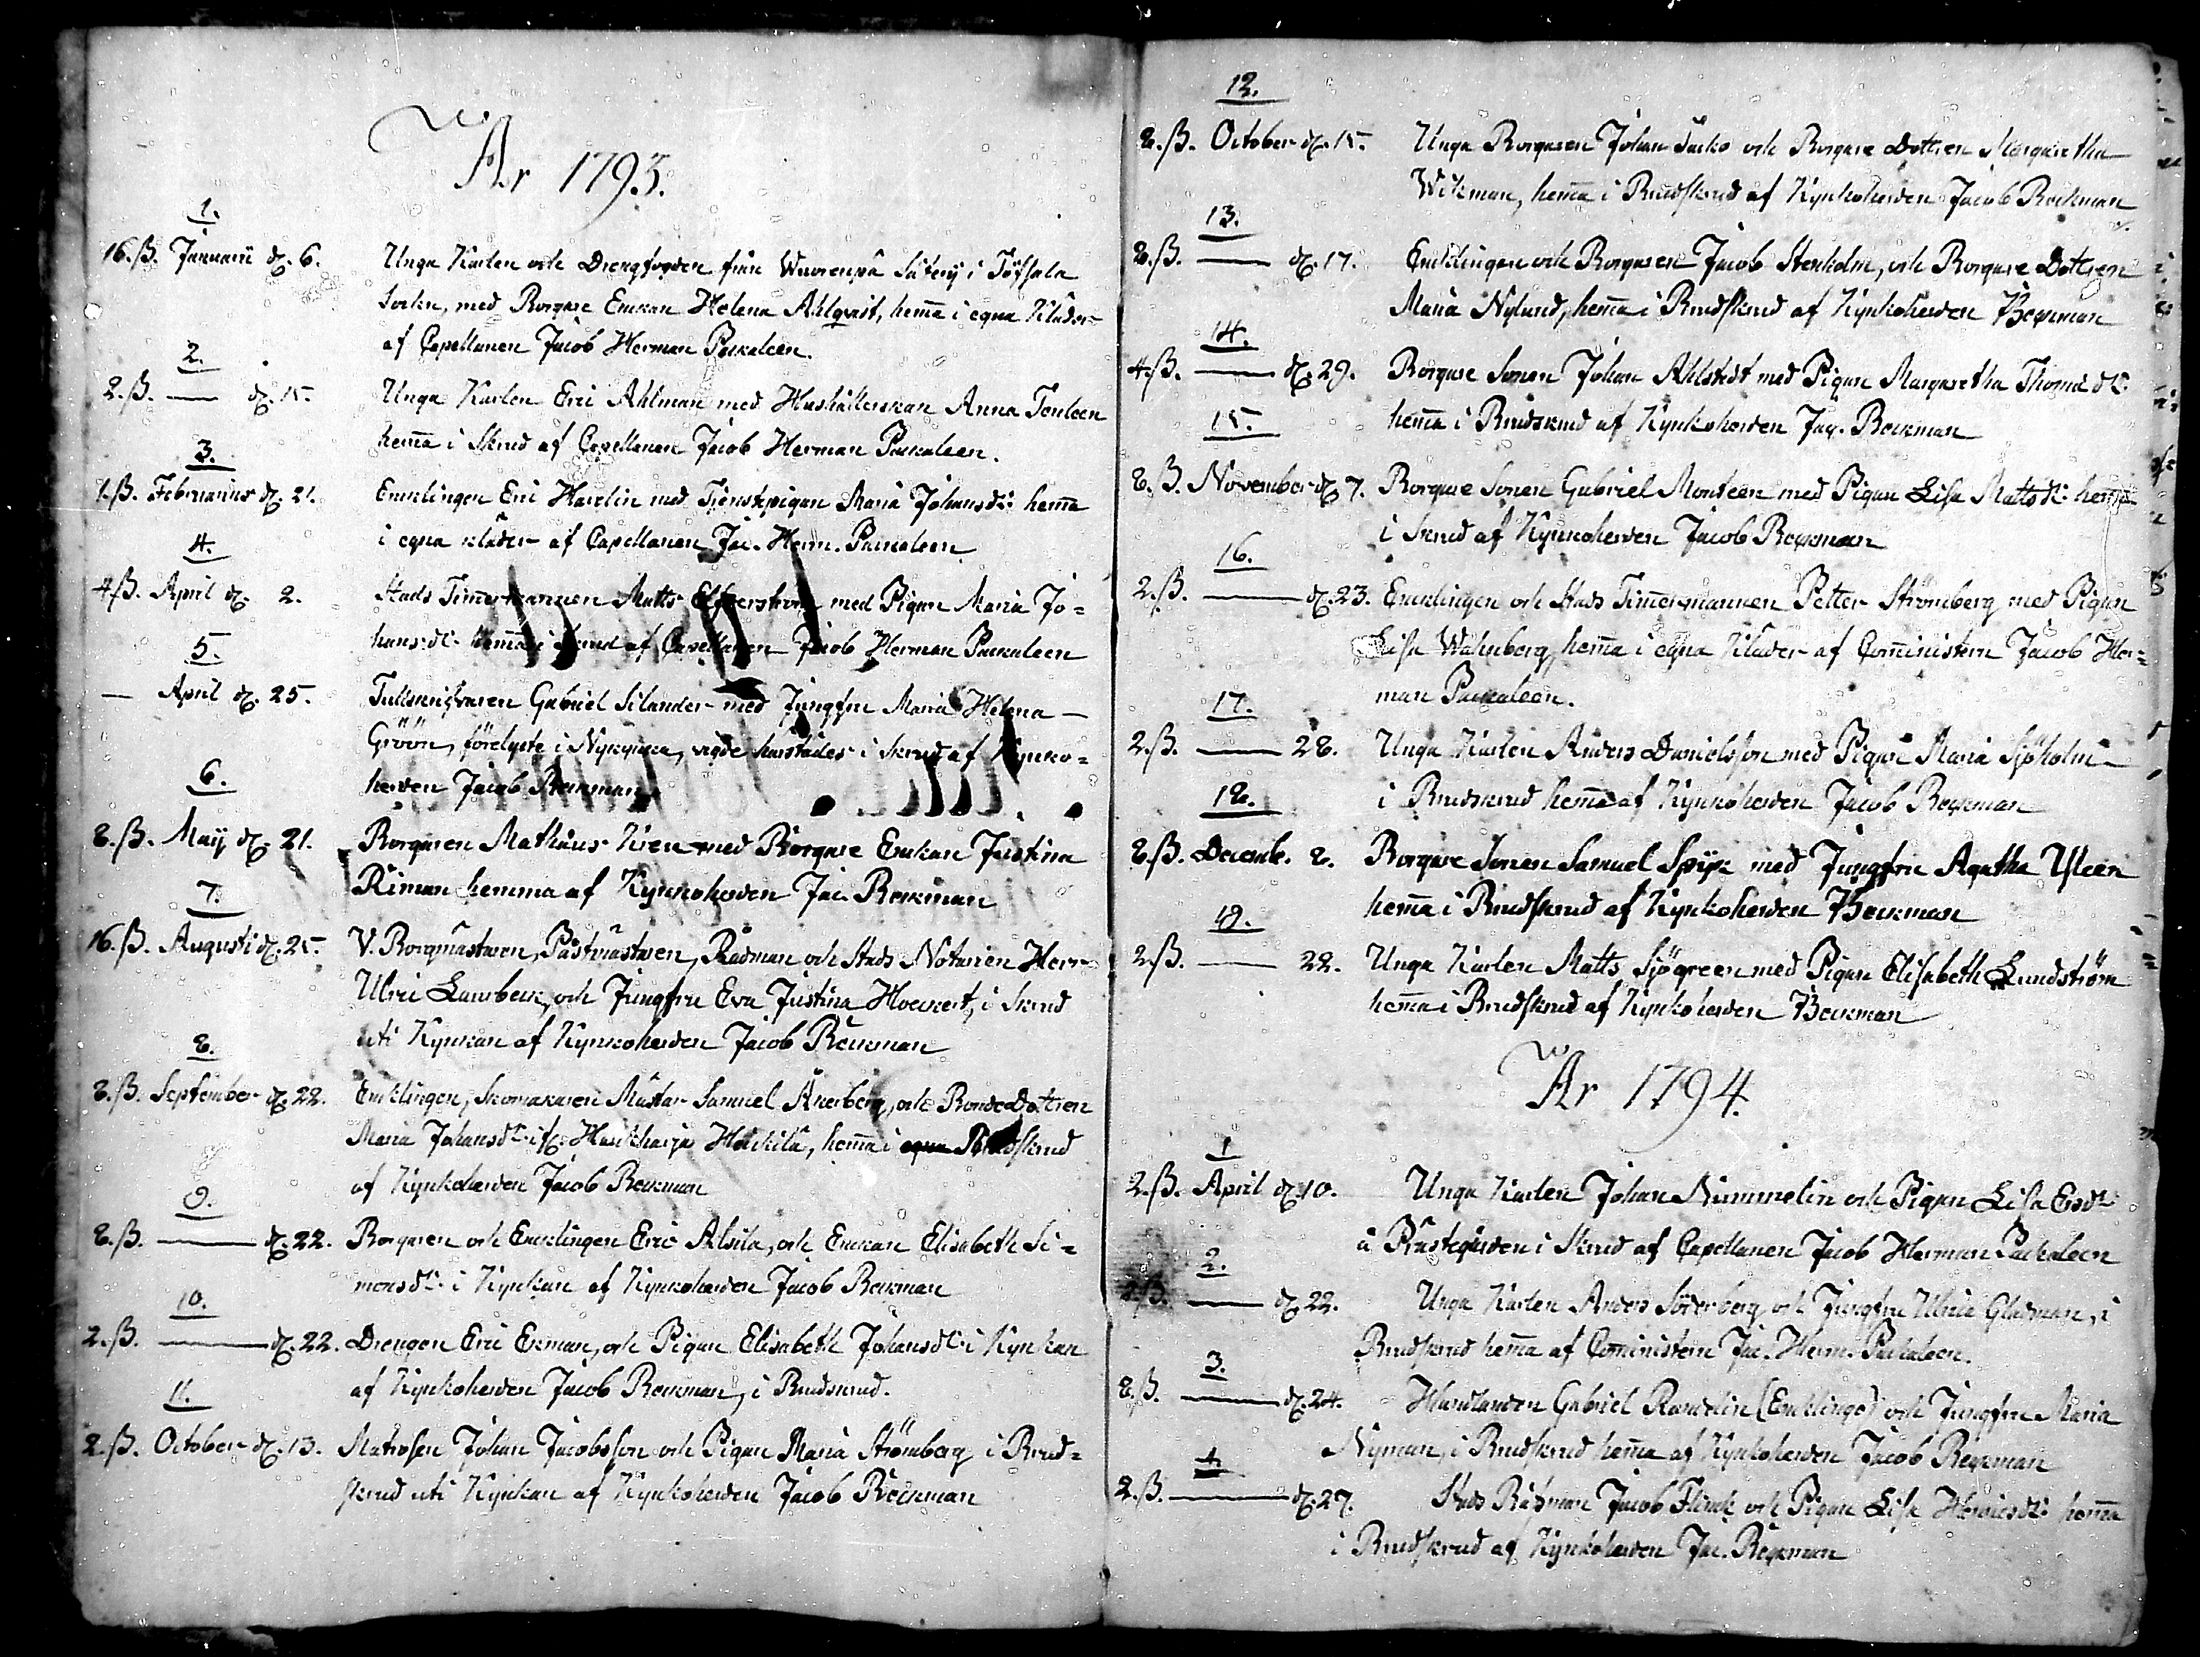 År 1793.
1.
16.ß. Januarii d. 6. Unga Karlen och Drengfogden från Wuorenpä Säterij i Töfsala
Sokn, med Borgare Enkan Helena Ahlqvist, hem̄a i egna Kläder
af Capellanen Jacob Herman Packaleen.
2.
2.ß. — d. 15. Unga Karlen Eric Ahlman med Hushållerskan Anna Tenleen
hem̄a i Skrud af Capellanen Jacob Herman Packaleen.
3.
1.ß. Februarius d. 21. Enklingen Eric Havelin med Tjenstepigan Maria Johansdr hem̄a
i egna kläder af Capellanen Jac. Herm. Packaleen
4.
4.ß. April d. 2. Stads Tim̄ermannen Matts med Pigan Maria Jo=
hansdr hem̄a i Skrud af Capellanen Jacob Herman Packaleen
5.
— April d. 25. Tullskrifvaren Gabriel Silander med Jungfru Maria Helena
Gröön, förelyste i Nykyrka, vigde härstädes i Skrud af Kyrko=
herden Jacob Beckman
6.
8.ß. Maij d. 21. Borgaren Mathæus Kren med Borgare Enkan Justina
Riman hemma af Kyrkoherden Jac. Beckman
7.
16.ß. Augusti d. 25. V. Borgmästaren, Postmästaren, Rådman och Stads Notarien Herr
Ulric Lambeck, och Jungfru Eva Justina Hoeckert, i Skrud
uti Kyrkan af Kyrkoherden Jacob Beckman
8.
8.ß. September d. 22. Enklingen, Skomakaren Mästar Samuel Åkerberg, och Bonde Dottren
Maria Johansdr if. Haukkarja Heikilä, hem̄a i egna Brudskrud
af Kyrkoherden Jacob Beckman
9.
8.ß. — d. 22. Borgaren och Enklingen Eric Alsila, och Enkan Elisabeth Si=
monsdr i Kyrkan af Kyrkoherden Jacob Beckman
10.
2.ß. — d. 22. Drengen Eric Ekman, och Pigan Elisabeth Johansdr i Kyrkan
af Kyrkoherden Jacob Beckman, i Brudskrud.
11.
2.ß. October d. 13. Matrosen Johan Jacobsson och Pigan Maria Strömberg i Brud=
skrud uti Kyrkan af Kyrkoherden Jacob Beckman
12.
8.ß. October d. 15. Unga Borgaren Johan Sacko och Borgare Dottren Margaretha
Wikman, hem̄a i Brudskrud af Kyrkoherden Jacob Beckman
13.
8.ß. — d. 17. Enklingen och Borgaren Jacob Stenholm, och Borgare Dottren
Maria Nylund, hem̄a i Brudskrud af Kyrkoherden Beckman
14.
4.ß. — d. 29. Borgare Sonen Johan Ahlstedt med Pigan Margaretha Thomædr
hem̄a i Brudskrud af Kyrkoherden Jac. Beckman
15.
8.ß. November d. 7. Borgare Sonen Gabriel Monteen med Pigan Lisa Mattsdr hem̄a
i Skrud af Kyrkoherden Jacob Beckman
16.
2.ß. — d. 23. Enklingen och Stads Tim̄ermannen Petter Strömberg med Pigan
Lisa Wahnberg, hem̄a i egna Kläder af Com̄inistern Jacob Her=
man Packaleen.
17.
2.ß. — 28. Unga Karlen Anders Danielsson med Pigan Maria Sjöholm
i Brudskrud hem̄a af Kyrkoherden Jacob Beckman
18.
8.ß. Decemb. 8. Borgare Sonen Samuel Spijk med Jungfru Agatha Ulleen
hem̄a i Brudskrud af Kyrkoherden Beckman
19.
2.ß. — 22. Unga Karlen Matts Sjögreen med Pigan Elisabeth Lundström
hem̄a i Brudskrud af Kyrkoherden Beckman
År 1794.
1
2.ß. April d. 10. Unga Karlen Johan Nummelin och Pigan Lisa Ersdr
å Prästegården i Skrud af Capellanen Jacob Herman Packaleen
2.
2.ß. — d. 22. Unga Karlen Anders Söderberg och Jungfru Ulrica Gladman, i
Brudskrud hem̄a af Com̄inistern Jac. Herm. Packaleen.
3.
8.ß. — d. 24. Handlanden Gabriel Randelin (Enklinge) och Jungfru Maria
Nyman, i Brudskrud hem̄a af Kyrkoherden Jacob Beckman
4.
2.ß. — d. 27. Stads Båtsman Jacob Flink och Pigan Lisa Henricsdr hem̄a
i Brudskrud af Kyrkoherden Jac. Beckman